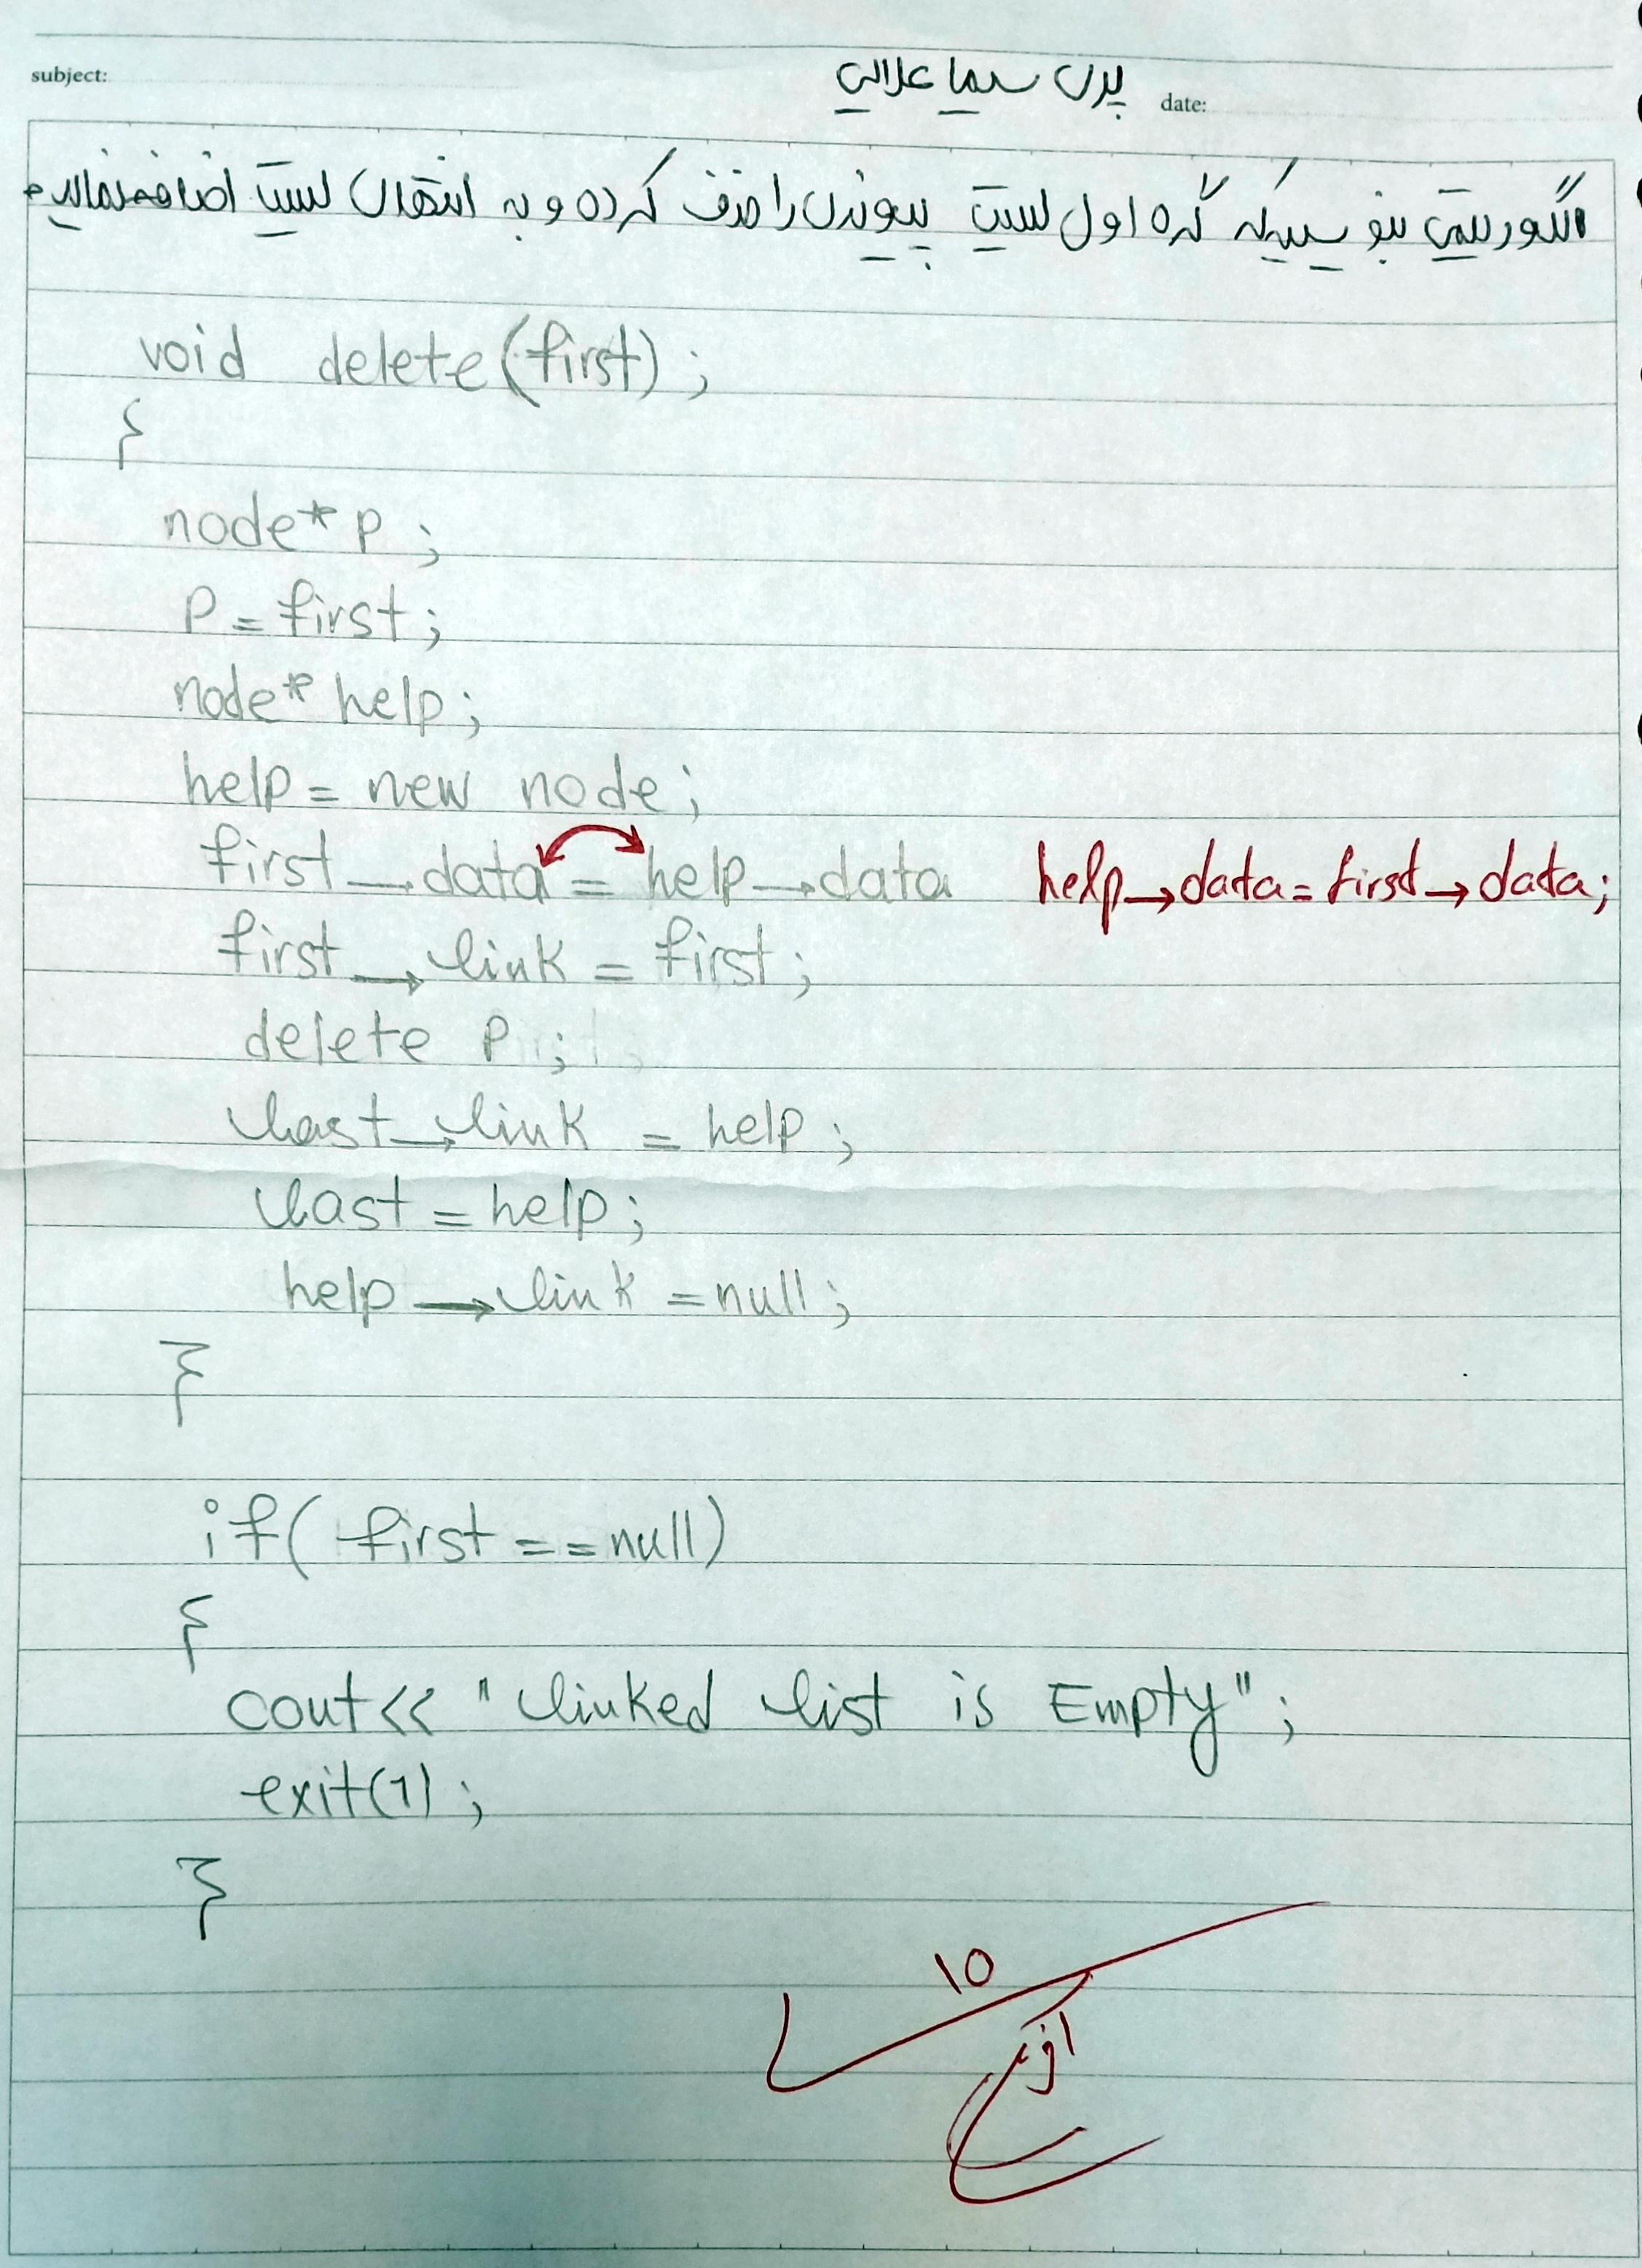 subject:
پدرس سیما علایی date:
الگوریتمی بنویسید که گره اول لیست پیوندی را حذف کرده و به انتهای لیست اضافه نمایید.
void delete(first);
{
node* p;
P = first;
node* help;
help = new node;
first→data = help→data help→data = first→data;
first→link = first;
delete P;
last→link = help;
last = help;
help→link = null;
}
if( first == null)
{
cout<< "linked list is Empty";
exit(1);
}
۱۰